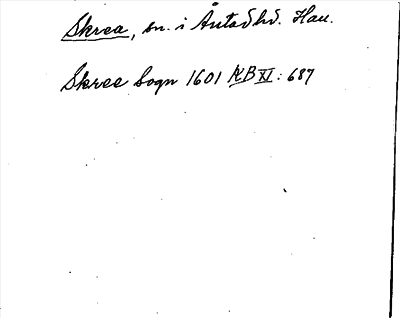 Skrea, sn. i Årstads hd. Hall.
Skree Sogn 1601 KB XI: 687